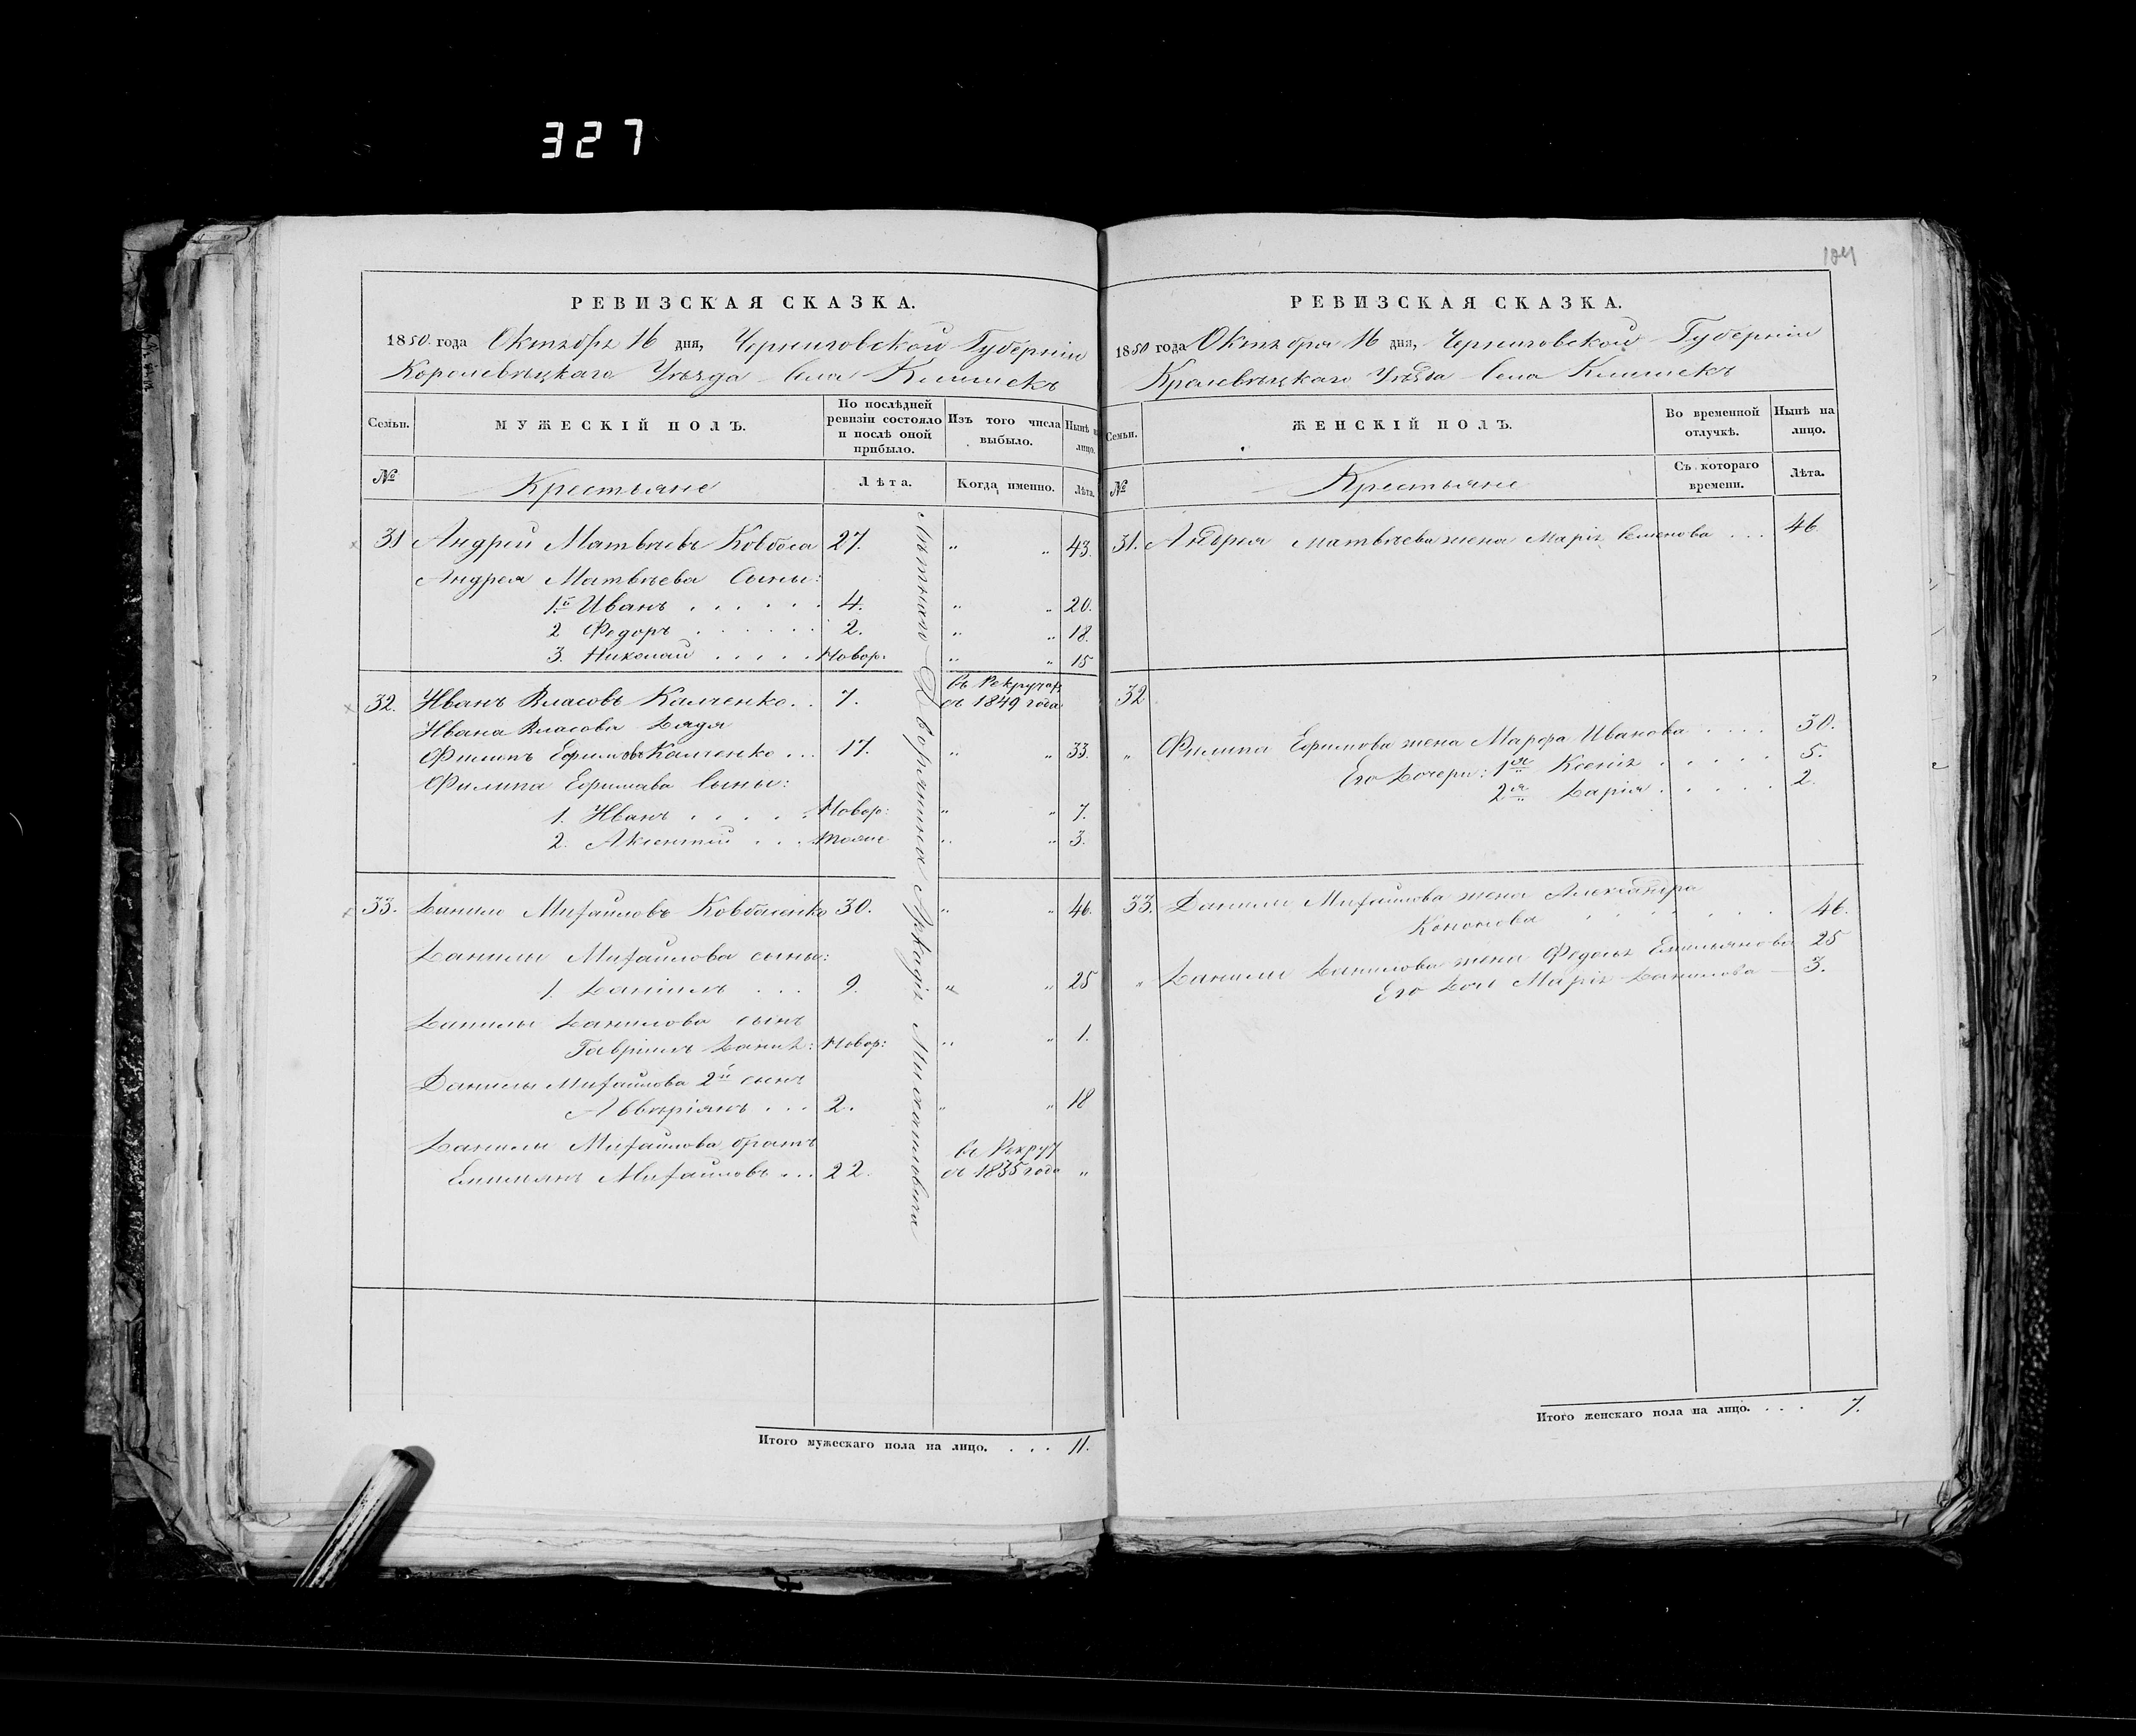 327
104
РЕВИЗСКАЯ СКАЗКА.
1850 года Октября 16 дня, Черниговской Губернiи
Королевѣцкаго Уѣзда Села Клишекъ
Семьи.
МУЖЕСКІЙ ПОЛЪ.
По послѣдней ревизіи состояло и послѣ оной прибыло.
Изъ того числа выбыло.
Нынѣ на лицо.
№
Крестьяне
Лѣта.
Когда именно.
Лѣта.
31 Андрей Матвѣевъ Ковбаса 27. " " 43.
Андрея Матвѣева Сыны:
1й Иванъ . . . . . . 4. " " 20.
2 Федоръ . . . . . . 2. " " 18.
3. Николай . . . . . Новор: " " 15
32. Иванъ Власовъ Калченко . . 7. въ Рекрутах съ 1849 года
Ивана Власова Дядя
Филипъ Ефимовъ Калченко . . . 17. " " 33.
Филипа Ефимова Сыны:
1. Иванъ . . . . . Новор: " " 7.
2. Аксентій . . . тоже " " 3.
33. Данило Михайловъ Ковбасенко 30. " " 46.
Данилы Михайлова сыны:
1. Даніилъ . . . 9. " " 25
Данилы Данилова сынъ
Гавріилъ Данил: Новор: " " 1.
Данилы Михайлова 2й сынъ
Аввѣріянъ . . . 2. " " 18
Данилы Михайлова братъ
Емилиянъ Михайловъ . . . 22. въ Рекрут съ 1835 года "
Дворянина Аркадія
Итого мужескаго пола на лицо. . . . 11.
РЕВИЗСКАЯ СКАЗКА.
1850 года Октября 16 дня, Черниговской Губерніи
Кралевѣцкаго Уѣзда Села Клишекъ
Семьи.
ЖЕНСКІЙ ПОЛЪ.
Во временной отлучкѣ.
Нынѣ на лицо.
№
Крестьяне
Съ котораго времени.
Лѣта.
31. Андрея Матвѣева жена Марія Семенова . . . 46
32
" Филипа Ефимова жена Марфа Иванова . . . . 30.
Его Дочери: 1я Ксенія . . . . . . 5.
2я Дарія . . . . . . 2.
33. Данилы Михайлова жена Александра
Кононова . . . . . . 46.
" Данилы Данилова жена Федосья Емельянова 25
Его Дочь Марія Данилова — 3.
Итого женскаго пола на лицо. . . . 7.